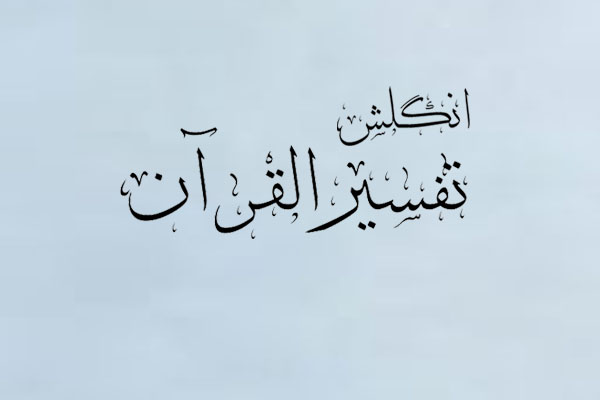 انگلش
تفسير القرآن